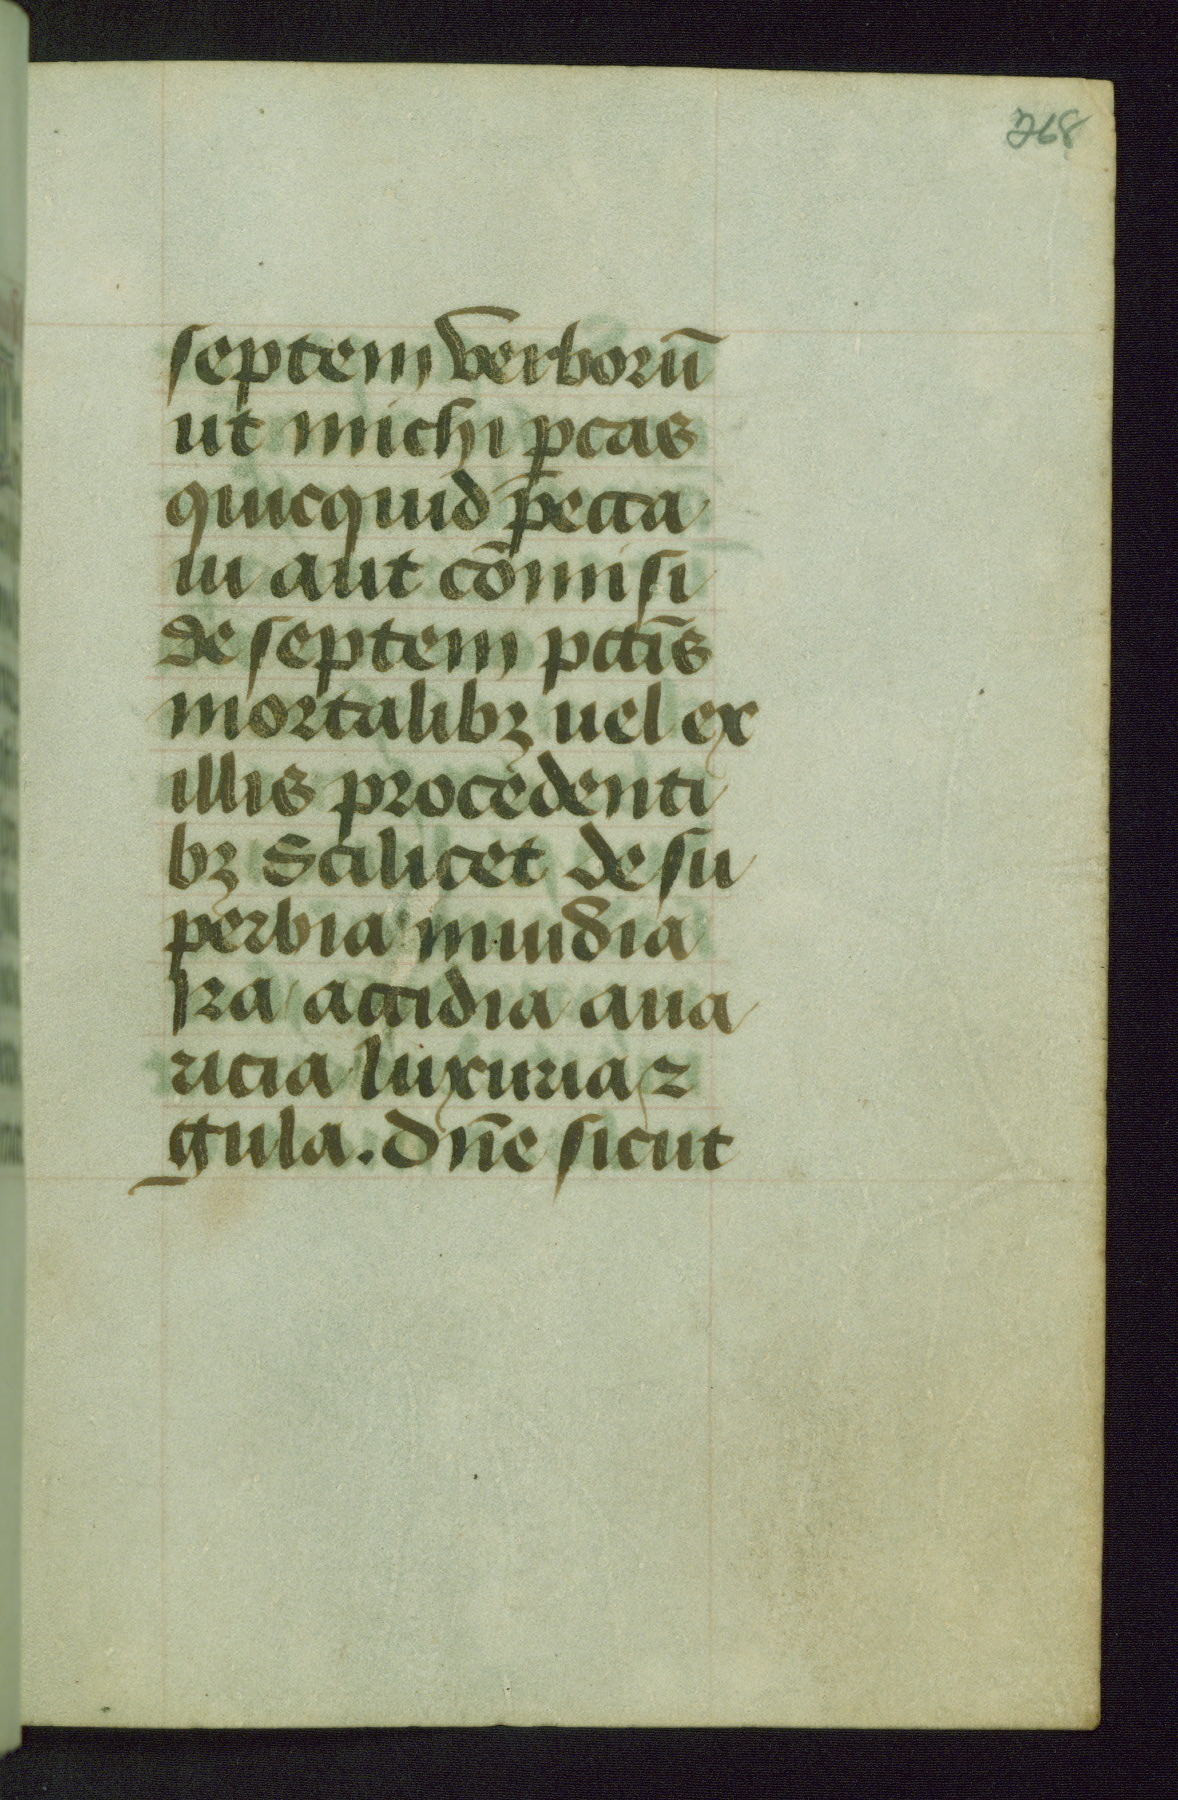 268
septem verborū
ut michi ꝑcas
quicquid pecca
ui aut cōmisi
de septem pctīs
mortalibꝫ uel ex
illis procedenti
bꝫ Scilicet de su
perbia inuidia
Ira accidia aua
ricia luxuria ⁊
gula. Dn̄e sicut